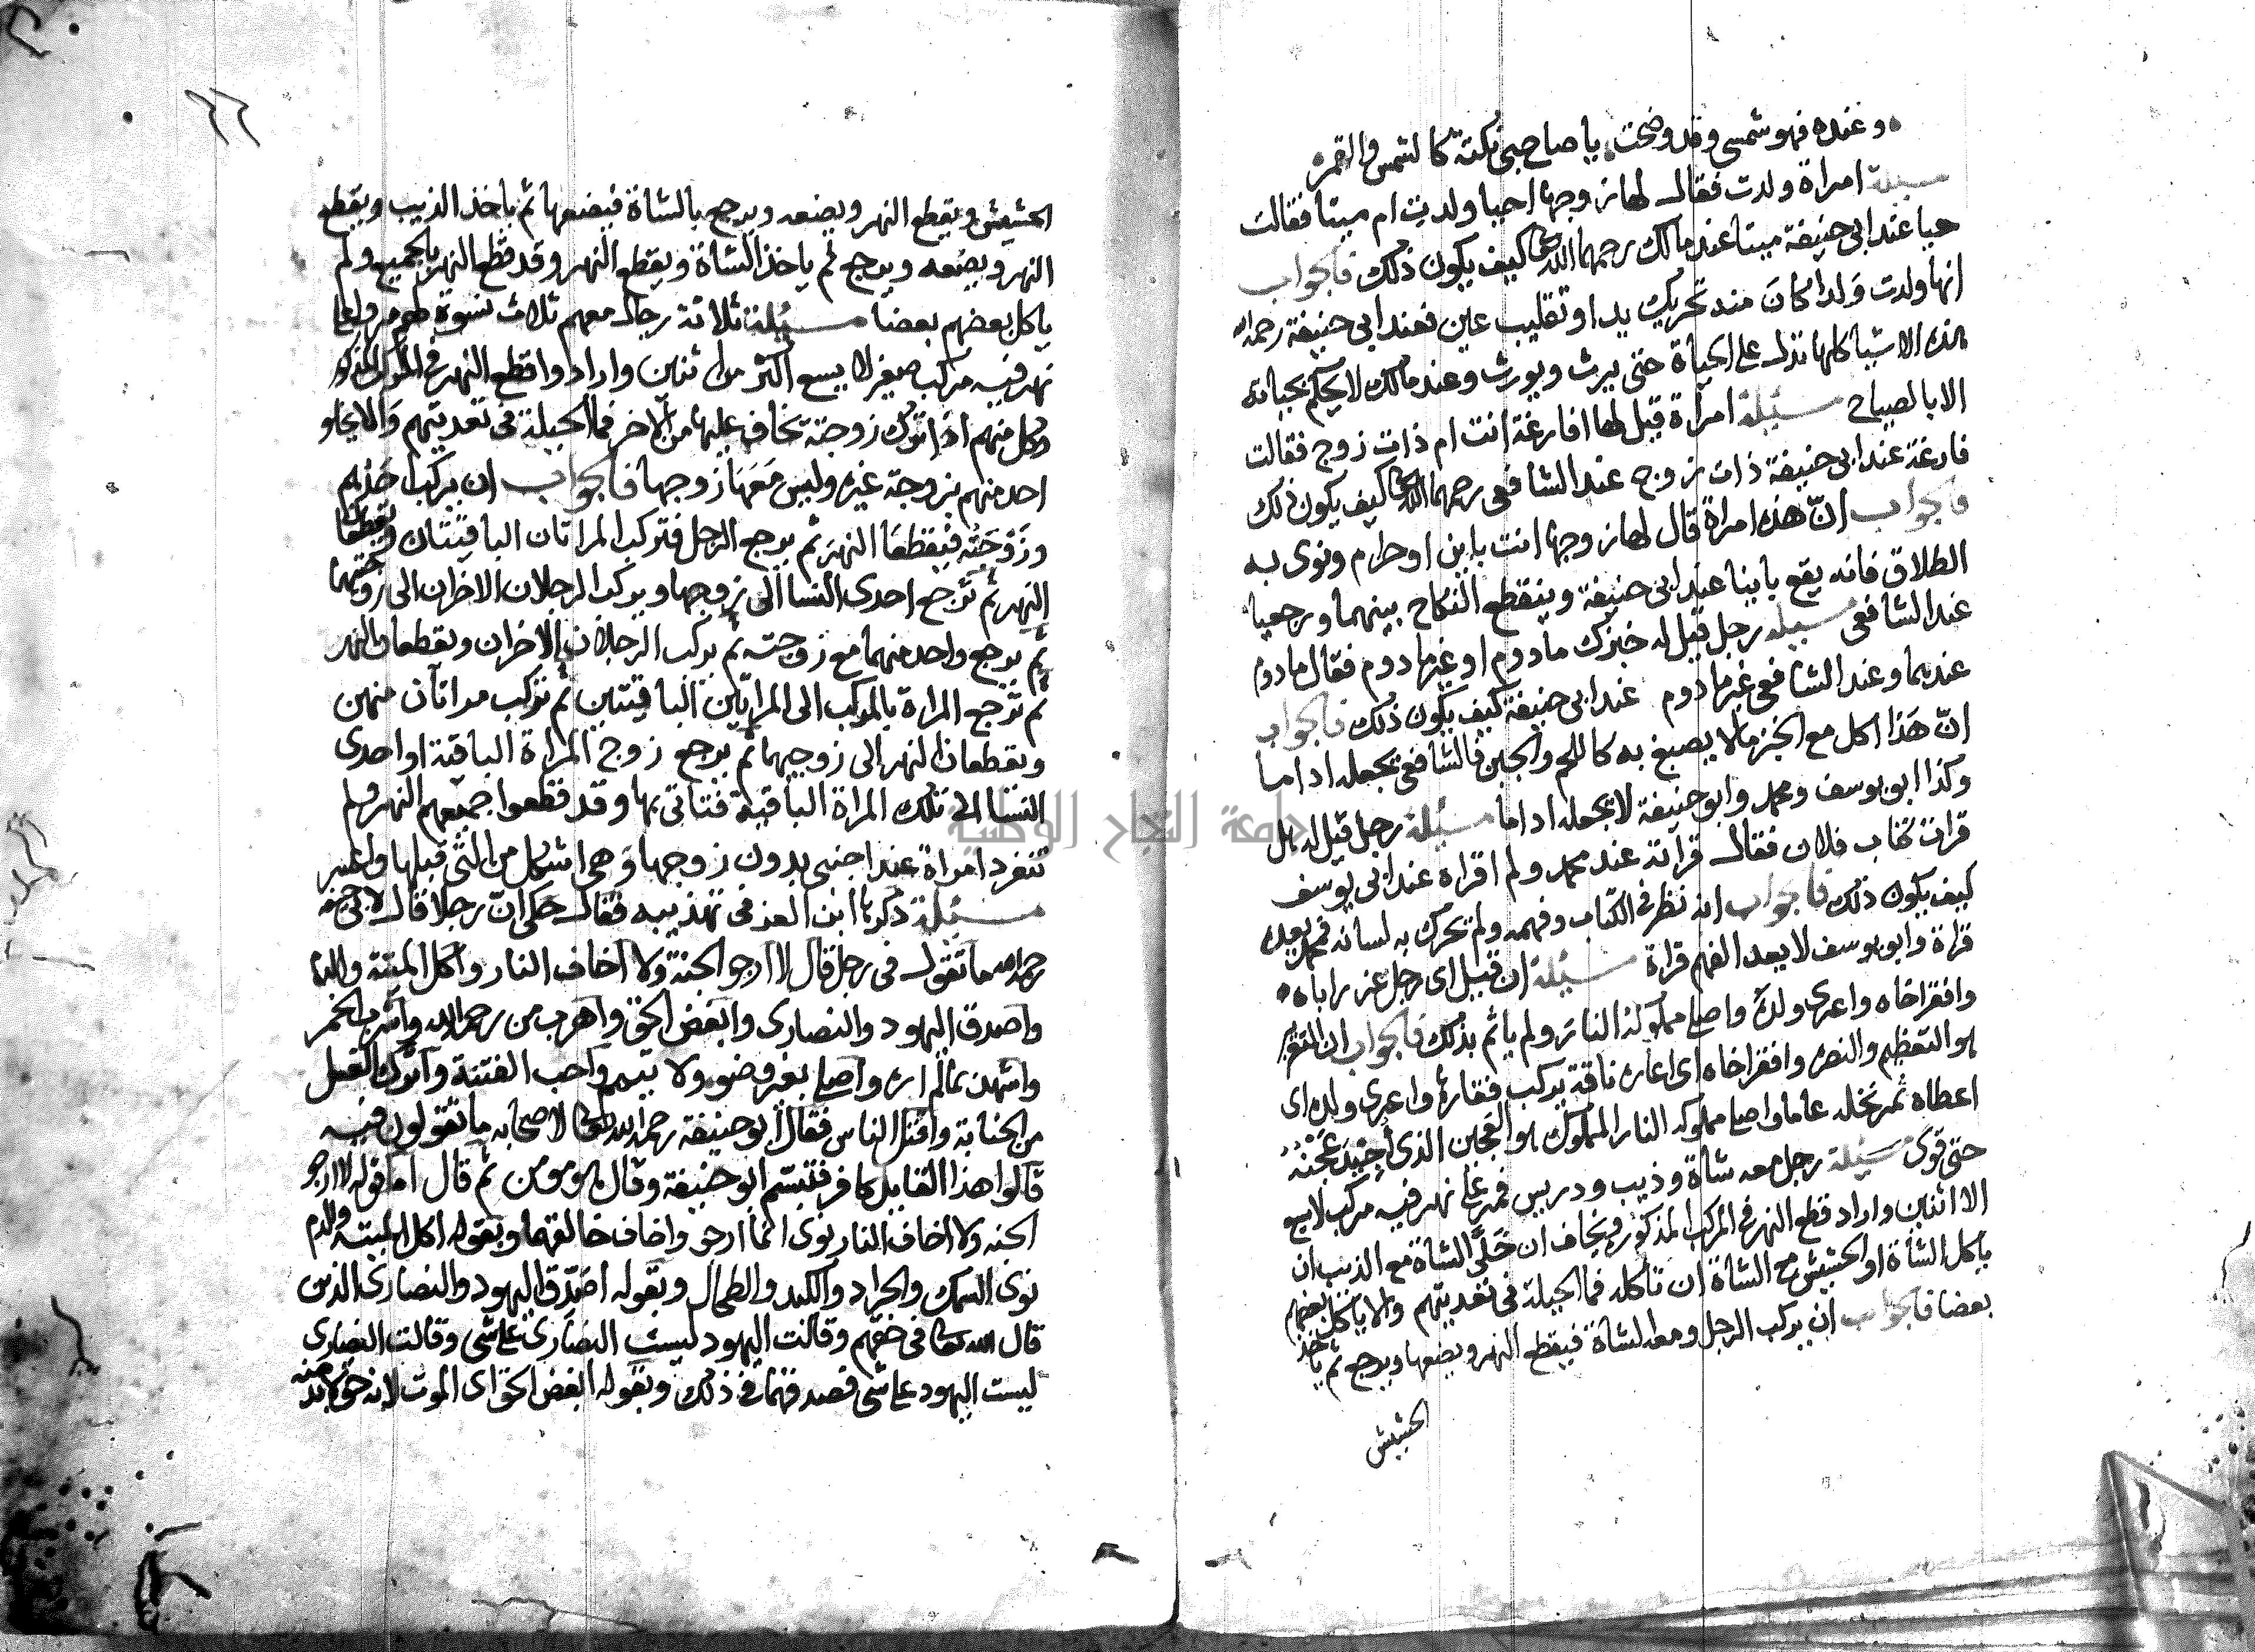 وعنده فهو شمسي وقد وضحت يا صاحبي نكتة كالشمس والقمر
مسيلة امراة ولدت فقال لها زوجها احيا ولدت ام ميتا فقالت
حيا عند ابي حنيفة ميتا عند مالك رحمهما الله تعالى كيف يكون ذلك فالجواب
انها ولدت ولدا كان منه تحريك يد او تقليب عين فعند ابي حنيفة رحمه الله
هذه الاشيا كلها تدل على الحياة حتى يرث ويورث وعند مالك لا يحكم بحياته
الا بالصياح مسئلة امراة قيل لها افارغة انت ام ذات زوج فقالت
فارغة عند ابي حنيفة ذات زوج عند الشافعي رحمهما الله تعالى كيف يكون ذلك
فالجواب انّ هذه امراة قال لها زوجها انت باين او حرام ونوى به
الطلاق فانه يقع باينا عند ابي حنيفة وينقطع النكاح بينهما ورجعيا
عند الشافعي مسيله رجل قيل له خبزك مادوم او غير مادوم فقال مادوم
عندهما وعند الشافعي غير مادوم عند ابي حنيفة كيف يكون ذلك فالجواب
انّ هذا اكل مع الخبز مالا يصبغ به كاللحم والجبن فالشافعي يجعله اداما
وكذا ابو يوسف ومحمد وابو حنيفة لا يجعله اداما مسئلة رجل قيل له هل
قرات كتاب فلان فقال قراته عند محمد ولم اقراه عند ابي يوسف
كيف يكون ذلك فالجواب انه نظر في الكتاب وفهمه ولم يحرك به لسانه فمحمد يعده
قراة وابو يوسف لا يعد الفهم قراة مسئلة ان قيل اي رجل عزر اباه
وافقر اخاه واعرى ولده واصلى مملوكه النار ولم ياثم بذلك فالجواب ان التعزير
هو التعظيم والنصره وافقر اخاه اى اعاره ناقة يركب فقارها واعرى ولده اى
اعطاه ثمر نخله عاما واصلى مملوكه النار المملوك هو العجين الذي اجيد عجنه
حتى قوى مسئلة رجل معه شاة وذيب ودريس فمر على نهر فيه مركب لا يسع
الا اثنين واراد قطع النهر في المركب المذكور ويخاف ان خلى الشاة مع الذيب ان
ياكل الشاة او الحشيش مع الشاة ان تاكله فما الحيلة في تعديتهم والا ياكل بعضهم
بعضا فالجواب ان يركب الرجل ومعه الشاة فيقطع النهر ويضعها ويرجع ثم ياخذ
الحشيش
٦٦
الحشيش ويقطع النهر ويضعه ويرجع بالشاة فيضعها ثم ياخذ الذيب ويقطع
النهر ويضعه ويرجع ثم ياخذ الشاة ويقطع النهر وقد قطع النهر بالجميع ولم
ياكل بعضهم بعضا مسئلة ثلاثة رجال معهم ثلاث نسوة لهم مروا على
نهر فيه مركب صغير لا يسع اكثر من اثنين وارادوا قطع النهر في المركب المذكور
وكل منهم اذا ترك زوجته يخاف عليها من الاخر فما الحيلة في تعديتهم والا يخلو
احد منهم بزوجة غيره وليس معها زوجها فالجواب ان يركب احدهم
وزوجته فيقطعا النهر ثم يرجع الرجل فتركب المراتان الباقيتان ويقطعان
النهر ثم ترجع احدى النسا الى زوجها ويركب الرجلان الاخران الى زوجتيهما
ثم يرجع واحد منهما مع زوجته ثم يركب الرجلان الاخران ويقطعان النهر
ثم ترجع المراة بالمركب الى المراتين الباقيتين ثم تركب مراتان منهن
ويقطعان النهر الى زوجيهما ثم يرجع زوج المراة الباقية او احدى
النسا الى تلك المراة الباقية فتاتي بها وقد قطعوا جميعهم النهر ولم
تنفرد امراة عند اجنبي بدون زوجها وهي اشكل من التي قبلها واعسر
مسئلة ذكرها ابن العز في تهذيبه فقال حكى انّ رجلا قال لابي حنيفة
رحمه الله ما تقول في رجل قال لا ارجو الجنة ولا اخاف النار واكل الميتة والدم
واصدق اليهود والنصارى وابغض الحق واهرب من رحمة الله واشرب الخمر
واشهد بما لم اره واصلي بغير وضوء ولا تيمم واحب الفتنة واترك الغسل
من الجنابة واقتل الناس فقال ابو حنيفة رحمه الله تعالى لاصحابه ما تقولون فيه
قالوا هذا القايل كافر فتبسم ابو حنيفة وقال هو مومن ثم قال اما قوله لا ارجو
الجنه ولا اخاف النار نوى انما ارجو واخاف خالقهما وبقوله اكل الميته والدم
نوى السمك والجراد والكبد والطحال وبقوله اصدّق اليهود والنصارى الذين
قال الله تعالى في حقهم وقالت اليهود ليست النصارى على شي وقالت النصارى
ليست اليهود على شي فصدقهما في ذلك وبقوله ابغض الحق اى الموت لانه حق لا بد منه
جامعة النجاح الوطنية